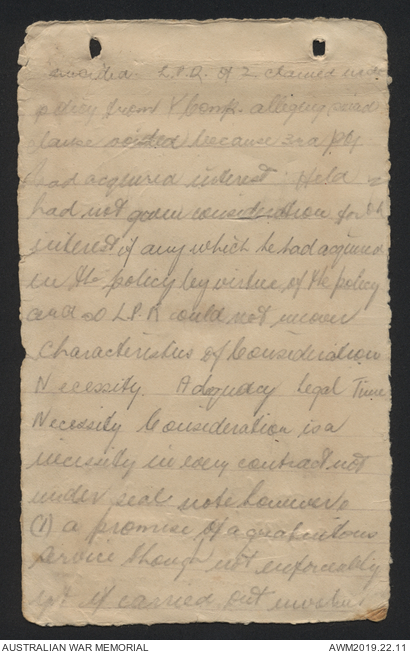 avoided. L.P.R. of Z claimed under
policy from Y Comp. alleging said
clause voided because 3rd pty
had acquired interest: Held Z
had not given consideration for the
interest if any which he had acquired
in the policy by virtue of the policy
and so L.P.R could not recover
Characteristics of Consideration
Necessity. Adequacy Legal Time
Necessity Consideration is a
necessity in every contract not
under seal note however:
(1) a promise of a gratuitous
service though not enforceable
yet if carried out involves
AUSTRALIAN WAR MEMORIAL AWM2019.22.11